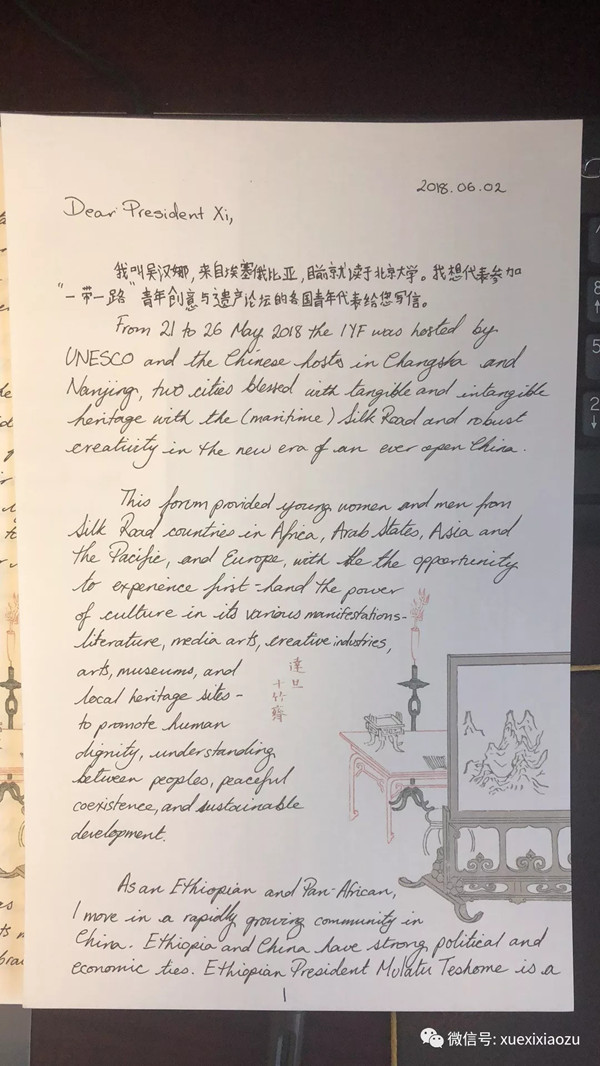 2018.06.02
Dear President Xi,
我叫吴汉娜,来自埃塞俄比亚,目前就读于北京大学。我想代表参加
“一带一路”青年创意与遗产论坛的各国青年代表给您写信。
From 21 to 26 May 2018 the IYF was hosted by
UNESCO and the Chinese hosts in Changsha and
Nanjing, two cities blessed with tangible and intangible
heritage with the (maritime) Silk Road and robust
creativity in the new era of an ever open China.
This forum provided young women and men from
Silk Road countries in Africa, Arab States, Asia and
the Pacific, and Europe, with the the opportunity
to experience first-hand the power
of culture in its various manifestations-
literature, media arts, creative industries,
arts, museums, and
local heritage sites-
to promote human
dignity, understanding
between peoples, peaceful
coexistence, and sustainable
development.
達旦
十竹齋
As an Ethiopian and Pan-African,
I move in a rapidly growing community in
China. Ethiopia and China have strong political and
economic ties. Ethiopian President Mulatu Teshome is a
1
微信号: xuexixiaozu